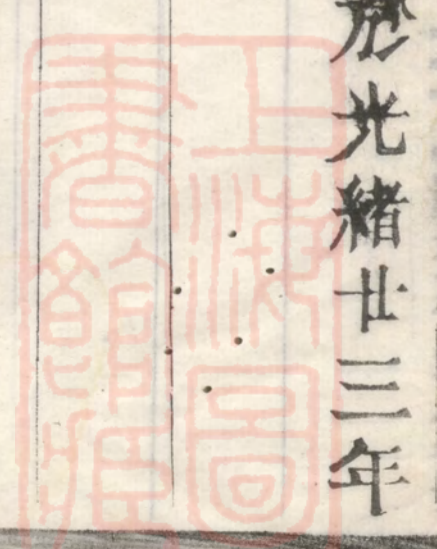 於光緒廿三年
上海圖
書館藏